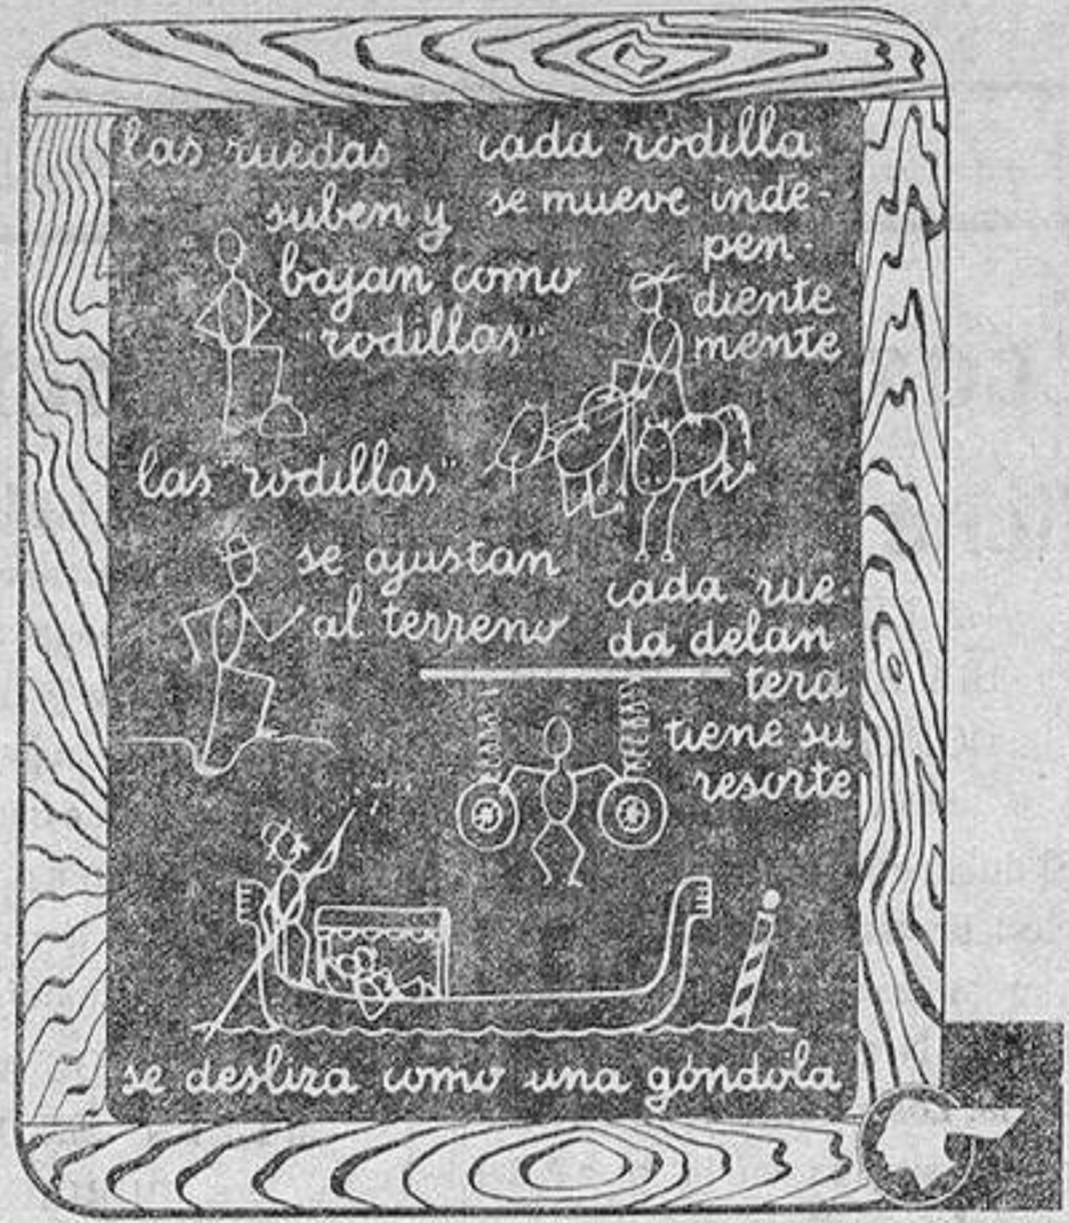 las ruedas
suben y
bajan como
"rodillas"
cada rodilla
se mueve inde-
pen-
diente
mente
las "rodillas"
se ajustan
al terreno
cada rue-
da delan
tera
tiene su
resorte
se desliza como una góndola